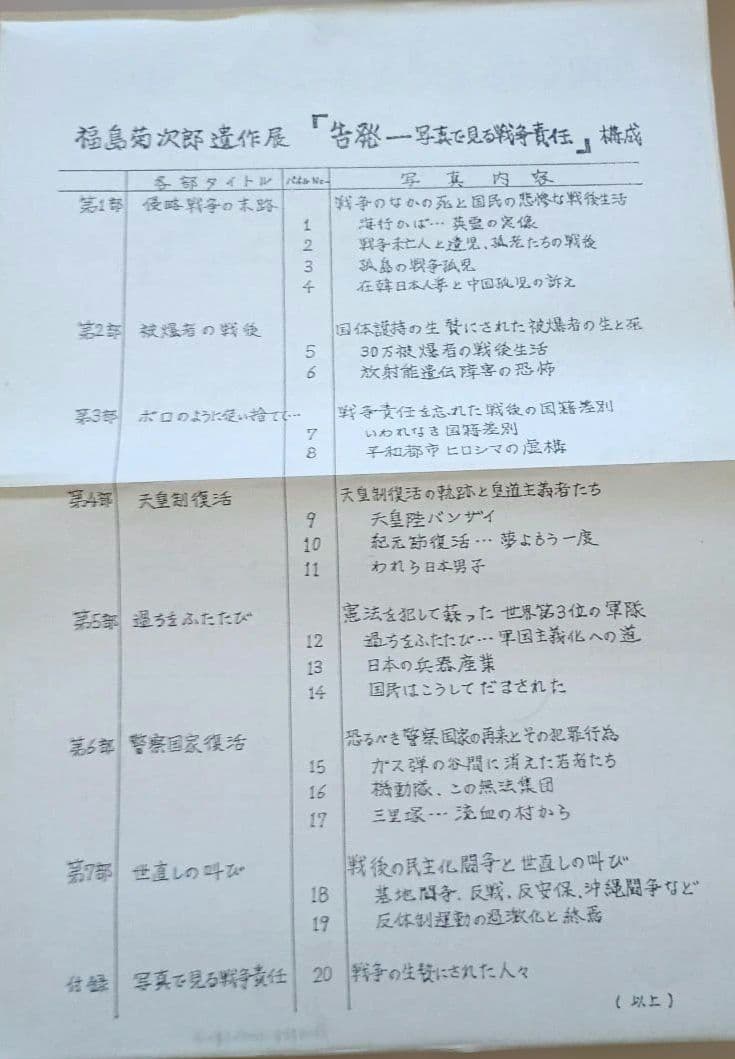 福島菊次郎遺作展 『告発—写真で見る戦争責任』 構成
各部タイトル パネルNo. 写真内容
第1部 侵略戦争の末路 戦争のなかの死と国民の悲惨な戦後生活
1 海行かば… 英霊の実像
2 戦争未亡人と遺児、孤老たちの戦後
3 孤島の戦争孤児
4 在韓日本人妻と中国孤児の訴え
第2部 被爆者の戦後 国体護持の生贄にされた被爆者の生と死
5 30万被爆者の戦後生活
6 放射能遺伝障害の恐怖
第3部 ボロのように使い捨て… 戦争責任を忘れた戦後の国籍差別
7 いわれなき国籍差別
8 平和都市ヒロシマの虚構
第4部 天皇制復活 天皇制復活の軌跡と皇道主義者たち
9 天皇陛バンザイ
10 紀元節復活… 夢よもう一度
11 われら日本男子
第5部 過ちをふたたび 憲法を犯して蘇った世界第3位の軍隊
12 過ちをふたたび… 軍国主義化への道
13 日本の兵器産業
14 国民はこうしてだまされた
第6部 警察国家復活 恐るべき警察国家の再来とその犯罪行為
15 ガス弾の谷間に消えた若者たち
16 機動隊、この無法集団
17 三里塚… 流血の村から
第7部 世直しの叫び 戦後の民主化闘争と世直しの叫び
18 基地闘争、反戦、反安保、沖縄闘争など
19 反体制運動の過激化と終焉
付録 写真で見る戦争責任 20 戦争の生贄にされた人々
(以上)